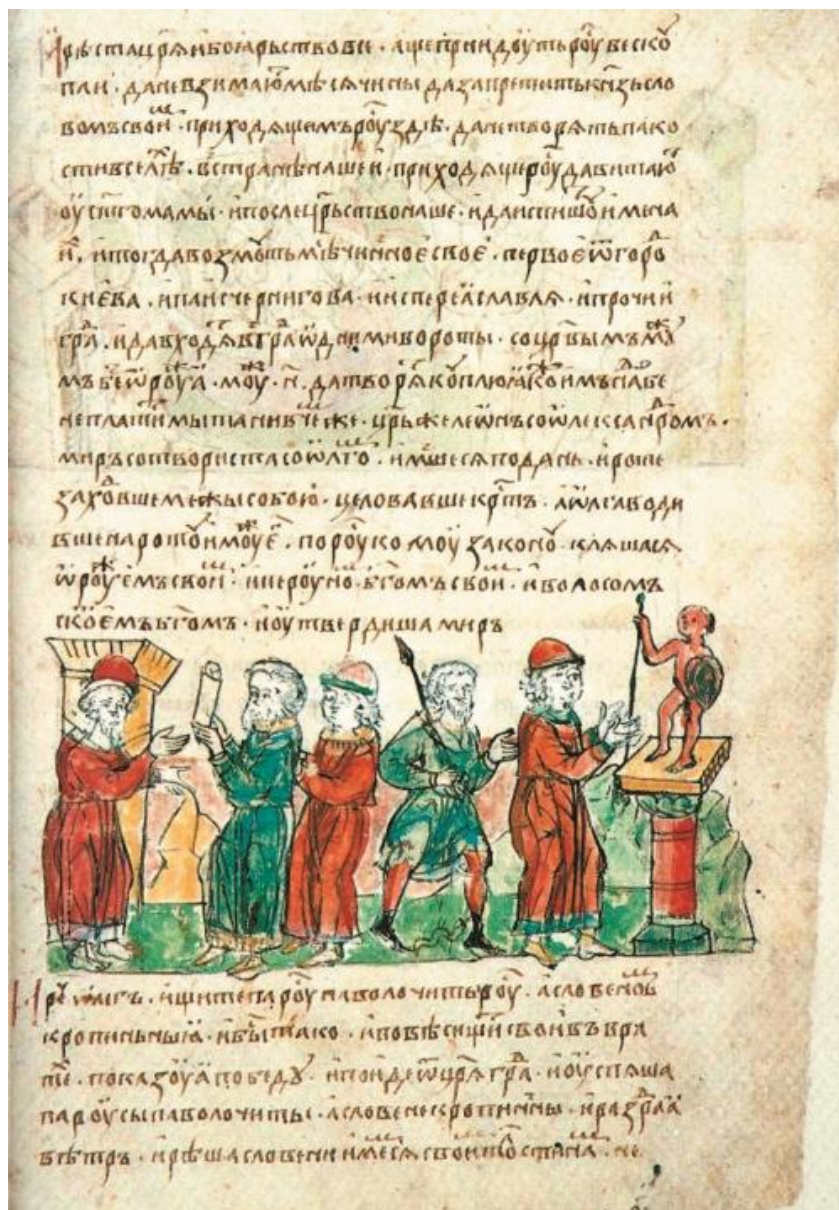 Рѣста црѧ и боꙗрьство все · аще приидоуть роу бес коу
пли · да не взимаю мѣсѧчины да запретить кнѧзь сло
вомъ свои · приходѧщемъ роу здѣ · да не творѧть пако
сти в селѣ · в странѣ нашеи · приходѧще роу да витаю
оу стго мамы · и послеть црьство наше · и да испишоу имена
и · и тогда возмоуть мѣчнное свое · первое ѿ горо
киева · и паис чернигова · и ис переꙗславлѧ · и прочии
гра · и да входѧ в гра ѡдними вороты · со црвымъ моу
мъ бе ѡроуа · моу · н · да творѧ коуплю ꙗко имъ набе
не платѧчи мыта ни в че же · црь же леѡнъ со ѡлександромъ ·
миръ сотвориста со ѡлго · имшесѧ по дань · и роте
заховше межы собою · целовавше крть · а ѡлга води
вше на ротоу и моу е · по роускомоу законоу · клѧшасѧ
ѡроужемъ свои · и пероуно бгомъ свои · и волосомъ
скоемъ бгомъ · и оутвердиша миръ
И ре ѡлегъ · ищите пароу паволочить роу · а словено
кропиньныꙗ · и бы тако · и повѣси щи свои въ вра
те · показоуа победу · и поиде ѿ црѧгра · и оуспѧша
пароусы паволочиты · а словене кропинны · и разра а
вѣтръ · и рѣша словени имесѧ свои толстина · не